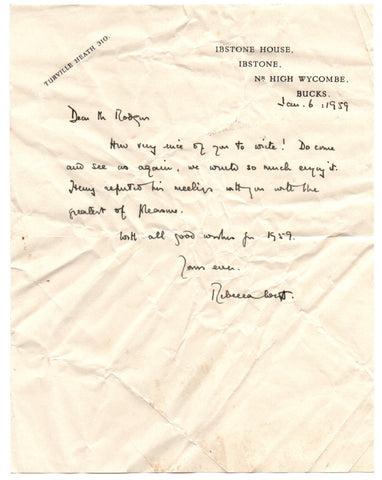 TURVILLE HEATH 310.
IBSTONE HOUSE,
IBSTONE,
Nr HIGH WYCOMBE,
BUCKS.
Jan. 6, 1959
Dear Mr Rodgers
How very nice of you to write! Do come
and see us again, we would so much enjoy it.
Henry reported his meetings with you with the
greatest of pleasure.
With all good wishes for 1959.
Yours ever.
Rebecca West.